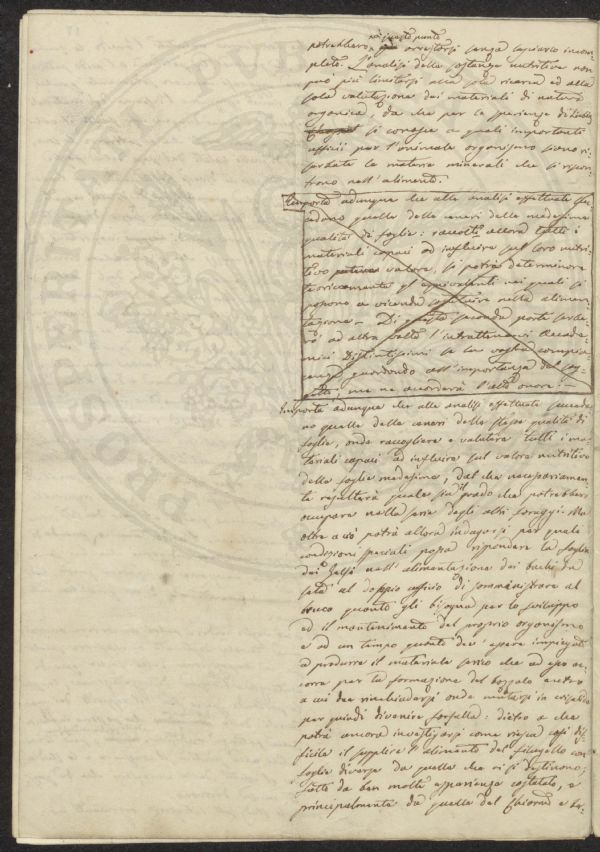 nè questo punto
potrebbero arrestarsi senza lasciarlo incom-
pleto. L'analisi delle sostanze nutritive non
può più limitarsi alla sola ricerca ed alla
sola valutazione dei materiali di natura
organica, da che per le sperienze di Liebig
si conosce a quali importanti
ufficii per l'animale organismo sieno ri-
serbate le materie minerali che si riscon-
trono nell'alimento.
Importa adunque che alle analisi effettuate suc-
cedano quelle delle ceneri delle medesime
qualità di foglie: raccolti allora tutti i
materiali capaci ad influire sul loro nutri-
tivo potere valore, si potrà determinare
teoricamente gl'equivalenti nei quali si
possono a vicenda sostituire nella alimen-
tazione. Di questa seconda parte
ad altra volta l'intrattenervi Accade-
mici Distintissimi se la vostra compia-
cenza guardando all'importanza del sog-
getto, me ne accorderà l'alto onore.
Importa adunque che alle analisi effettuate succeda-
no quelle delle ceneri delle stesse qualità di
foglie, onde raccogliere e valutare tutti i ma-
teriali capaci ad influire sul valore nutritivo
delle foglie medesime, dal che necessariamen-
te risulterà quale sia il grado che potrebbero
occupare nella serie degli altri foraggi. Ma
oltre a ciò potrà allora indagarsi per quale
condizioni speciali possa rispondere la foglia
dei Gelsi nell'alimentazione dei bachi da
seta al doppio ufficio di somministrare al
baco quanto gli bisogna per lo sviluppo
ed il mantenimento del proprio organismo
e ad un tempo quanto dev'essere impiegato
a produrre il materiale serico che ad esso oc-
corra per la formazione del bozzolo entro
a cui dee rinchiudersi onde mutarsi in crisalide
per quindi divenire farfalla: dietro a che
potrà ancora investigarsi come riesca così dif-
ficile il supplire l'alimento del filugello con
foglie diverse da quelle che vi si destinano,
fatto da ben molte esperienze constatato, e
principalmente da quelle del